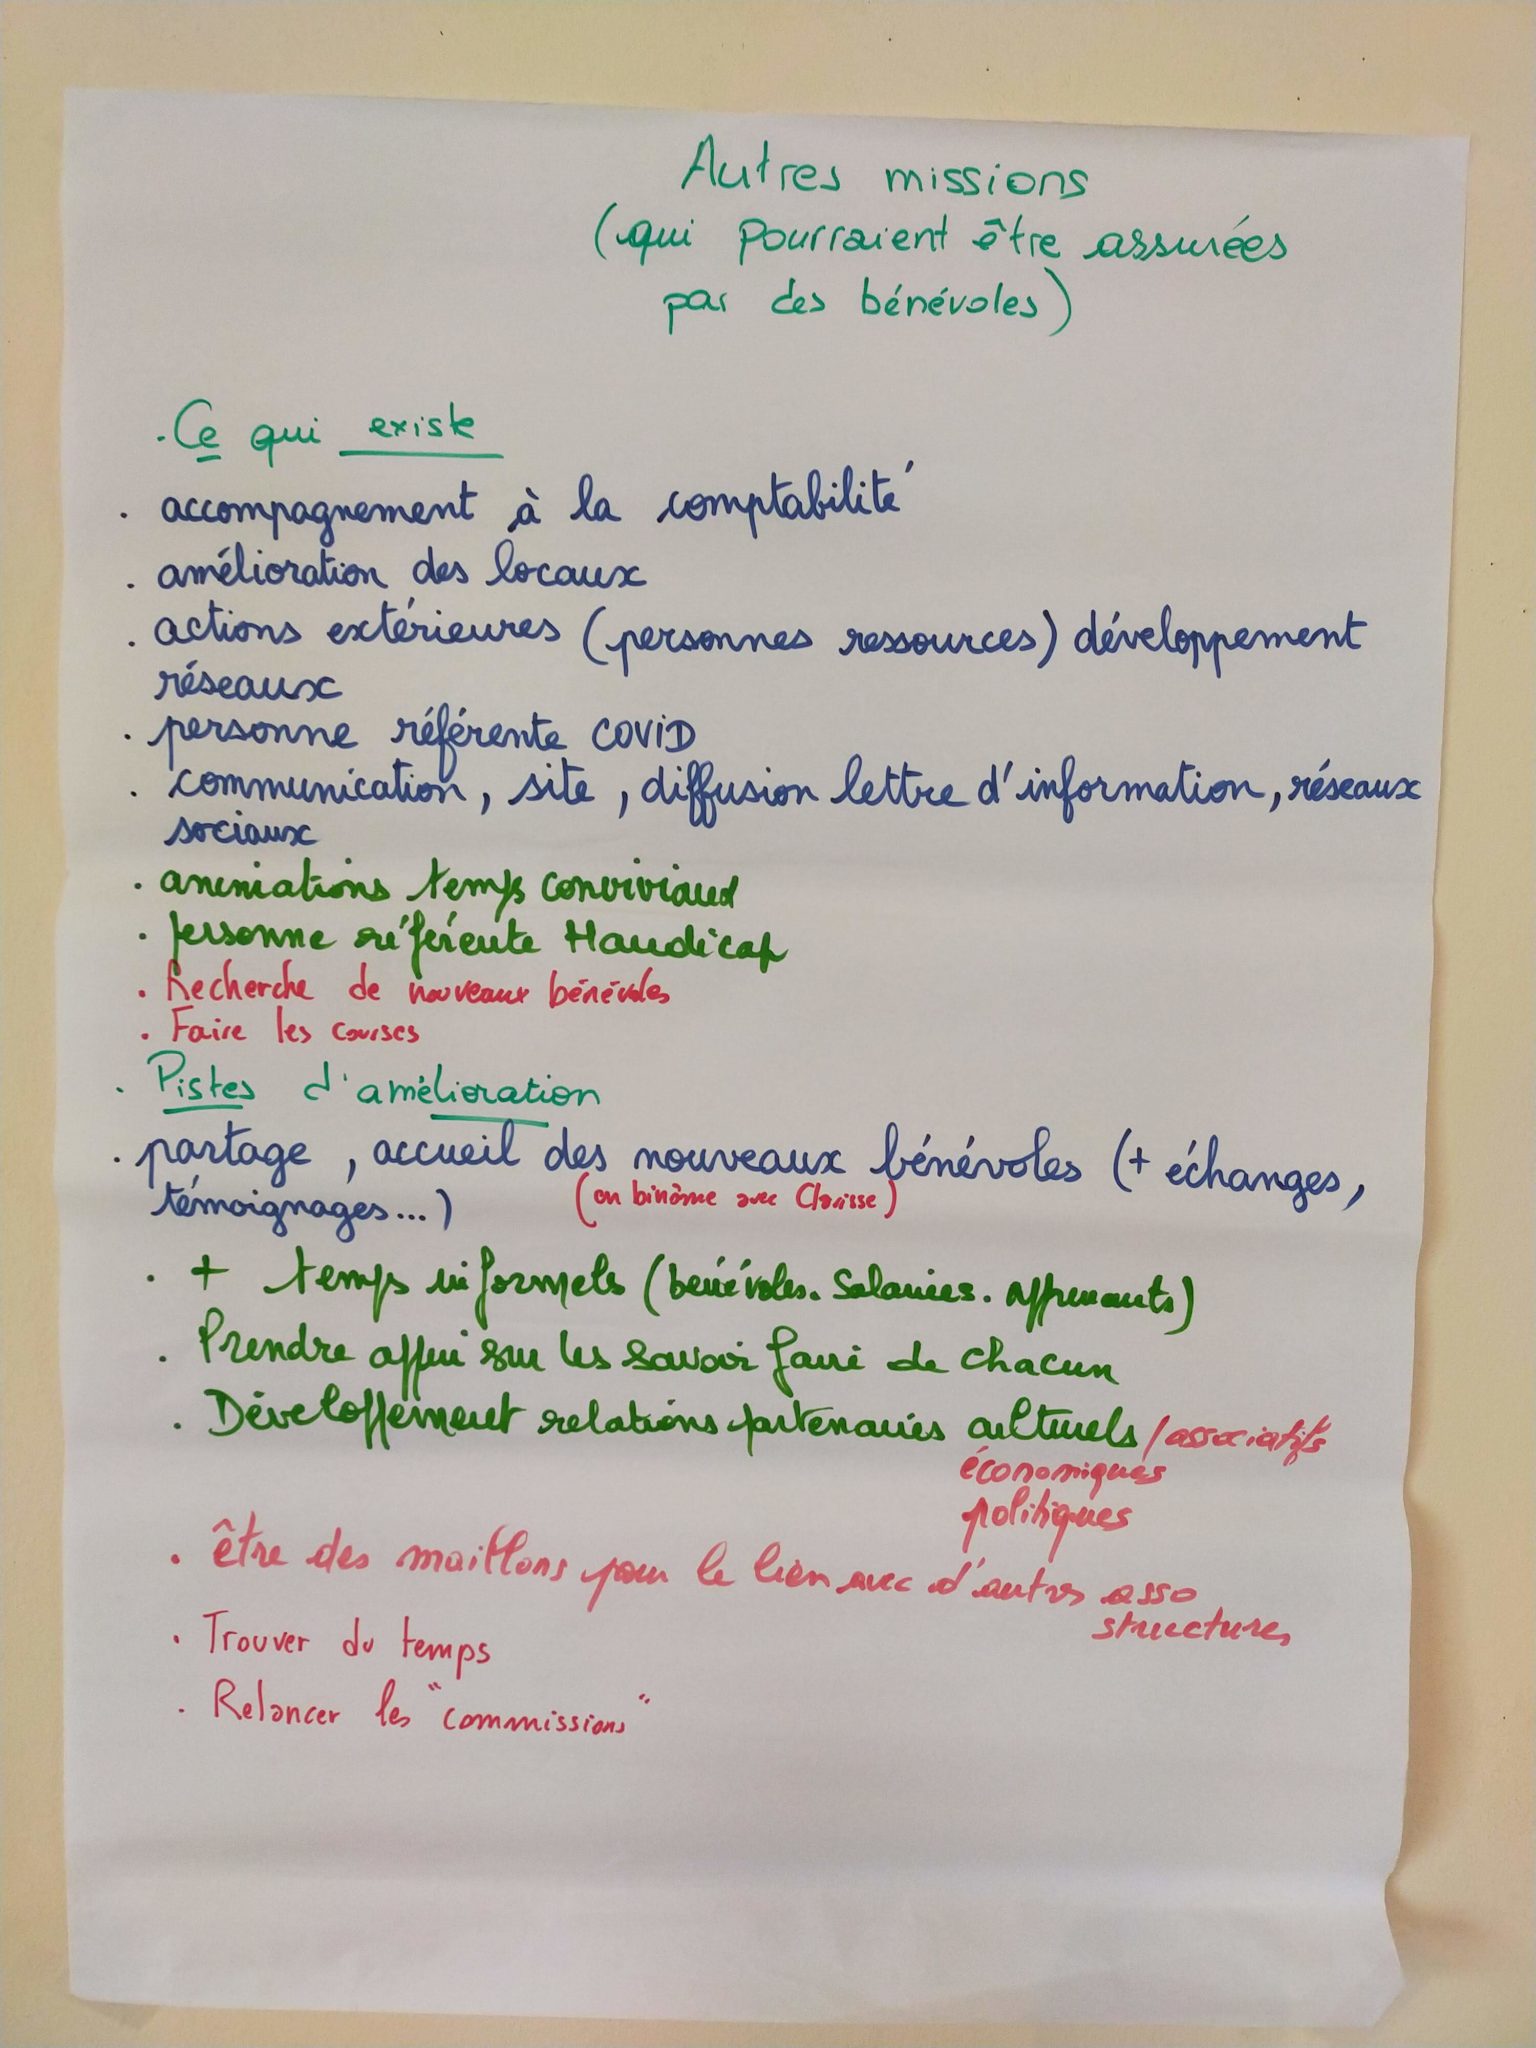 Autres missions
(qui pourraient être assurées
par des bénévoles)
. Ce qui existe
. accompagnement à la comptabilité
. amélioration des locaux
. actions extérieures (personnes ressources) développement
réseaux
. personne référente COVID
. communication, site, diffusion lettre d'information, réseaux
sociaux
. animations temps conviviaux
. personne référente Handicap
. Recherche de nouveaux bénévoles
. Faire les courses
. Pistes d'amélioration
. partage, accueil des nouveaux bénévoles (+ échanges,
témoignages...) (en binôme avec Clarisse)
. + temps informels (bénévoles. Salariées. apprenants)
. Prendre appui sur les savoir faire de chacun
. Développement relations partenaires culturels / associatifs
économiques
politiques
. être des maillons pour le lien avec d'autres asso
structures
. Trouver du temps
. Relancer les "commissions"